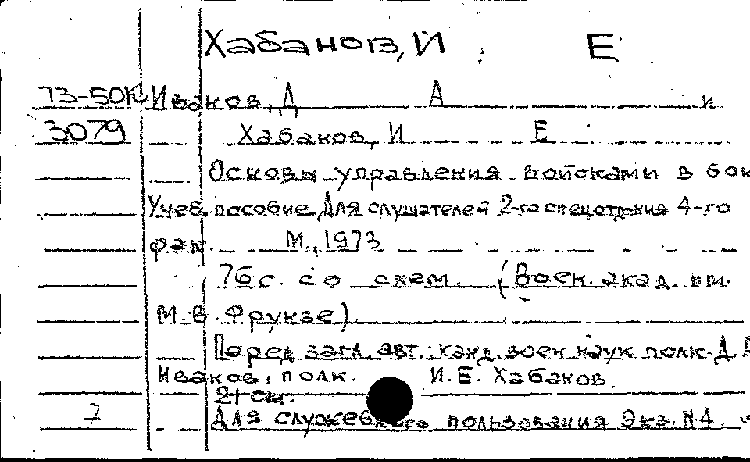 Хабанов, И Е
73-50К Иванов, Д А и
3079 Хабаков, И Е
Основы управления войсками в бою
Учеб. пособие Для слушателей 2-го спецотд-ния 4-го
фак. М., 1973
76с. со схем. (Воен. акад. им.
М. В. Фрунзе)
Перед загл. авт.: канд. воен наук полк. Д
Иванов, полк. И. Е. Хабаков.
21 см.
7 Для служебного пользования Экз. №1